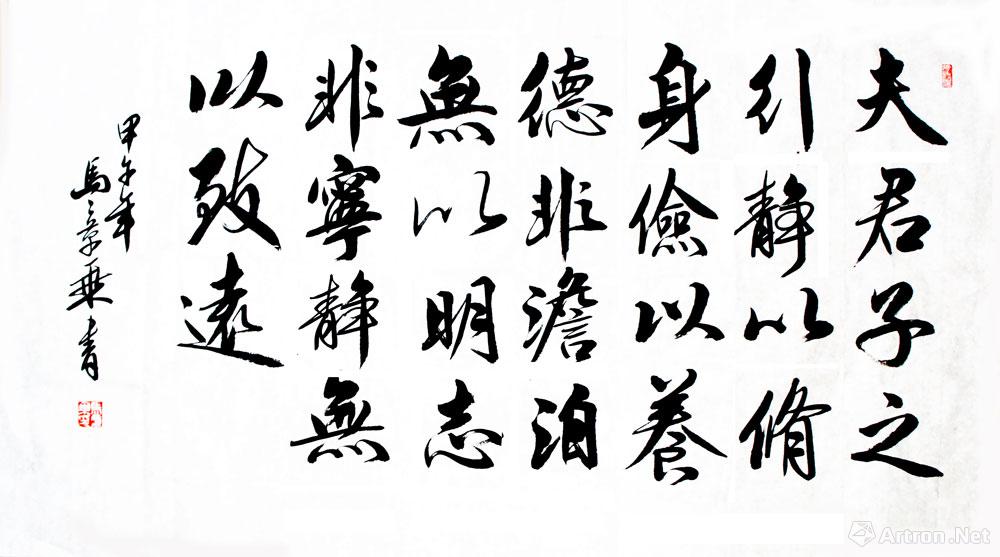 夫君子之
行静以脩
身儉以養
德非澹泊
無以明志
非寧静無
以致遠
甲午年
馬
Artron.Net